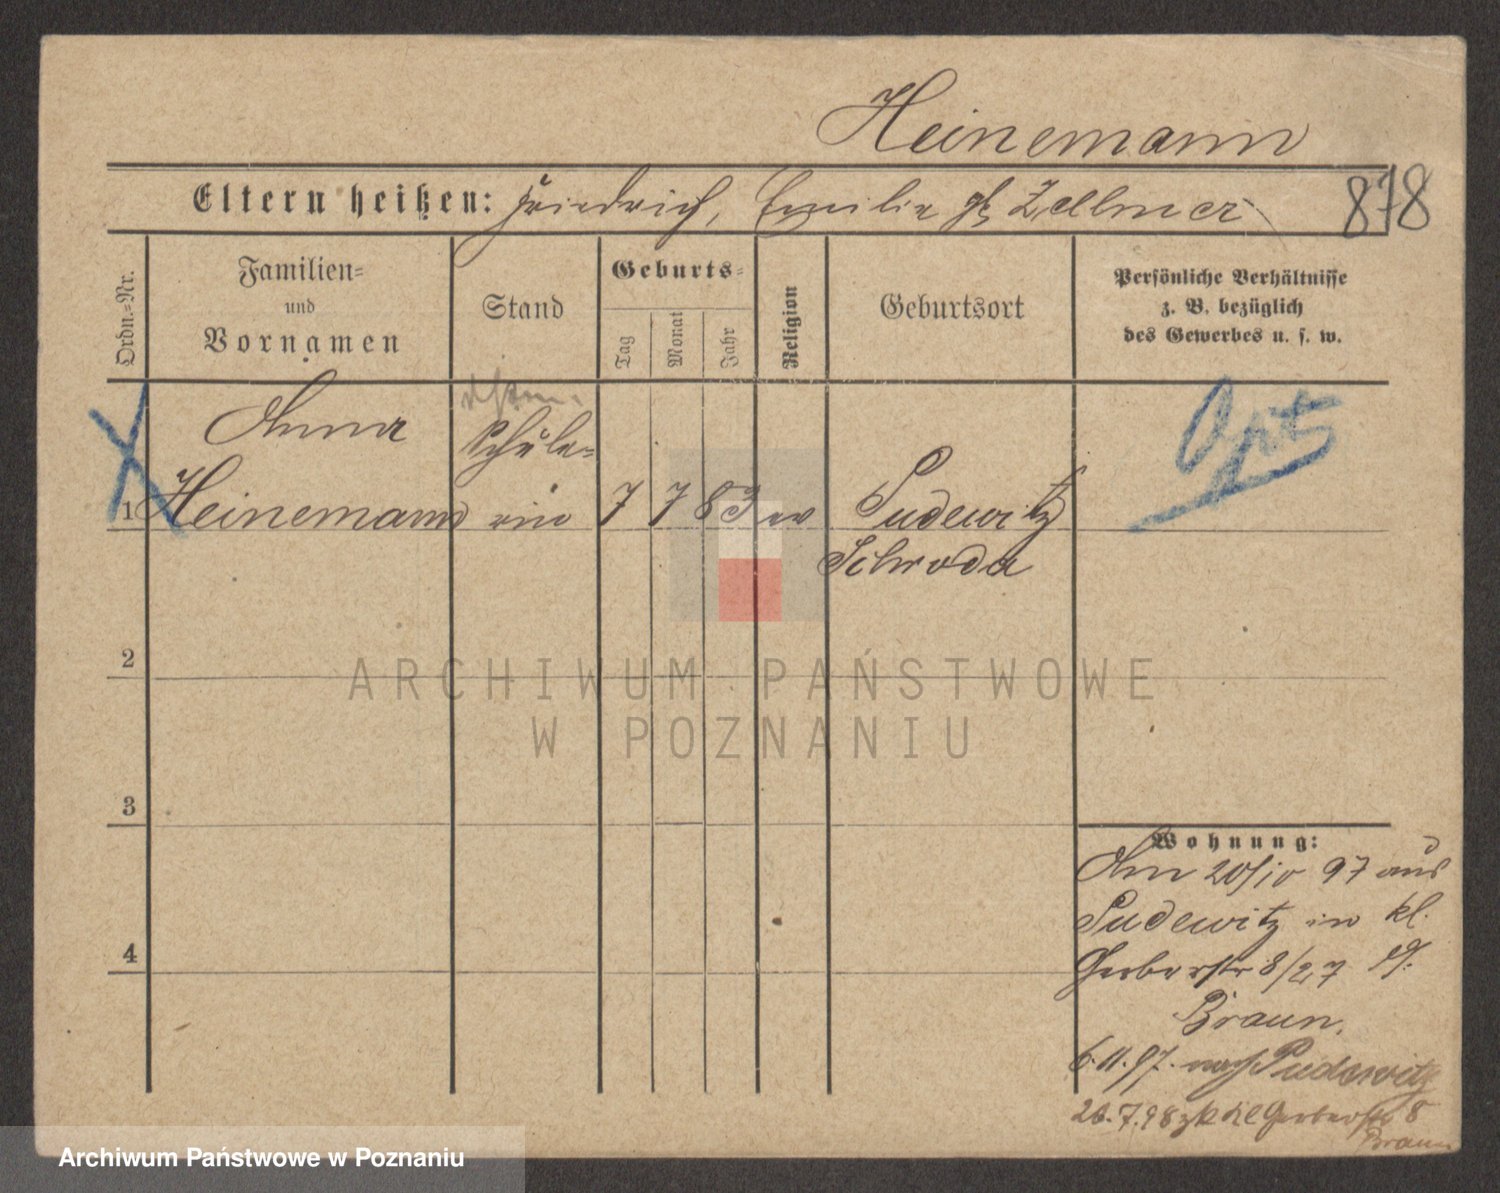 Heinemann
Eltern heißen: Friedrich, Emilie gb Zellmer
878
Ordn.=Nr.
Familien=
und
Vornamen
Stand
Geburts=
Tag
Monat
Jahr
Religion
Geburtsort
Persönliche Verhältnisse
z. B. bezüglich
des Gewerbes u. s. w.
Anna Schüle=
1 Heinemann rin 7 7 83 ev Pudewitz
Schroda
2
ARCHIWUM PAŃSTWOWE
W POZNANIU
3
4
Wohnung:
Am 20/10 97 aus
Pudewitz in kl.
Gerberstr 8/27
Braun.
6.11.97. nach Pudewitz
26.7.98 zk Gerberstr 8
Braun
Archiwum Państwowe w Poznaniu